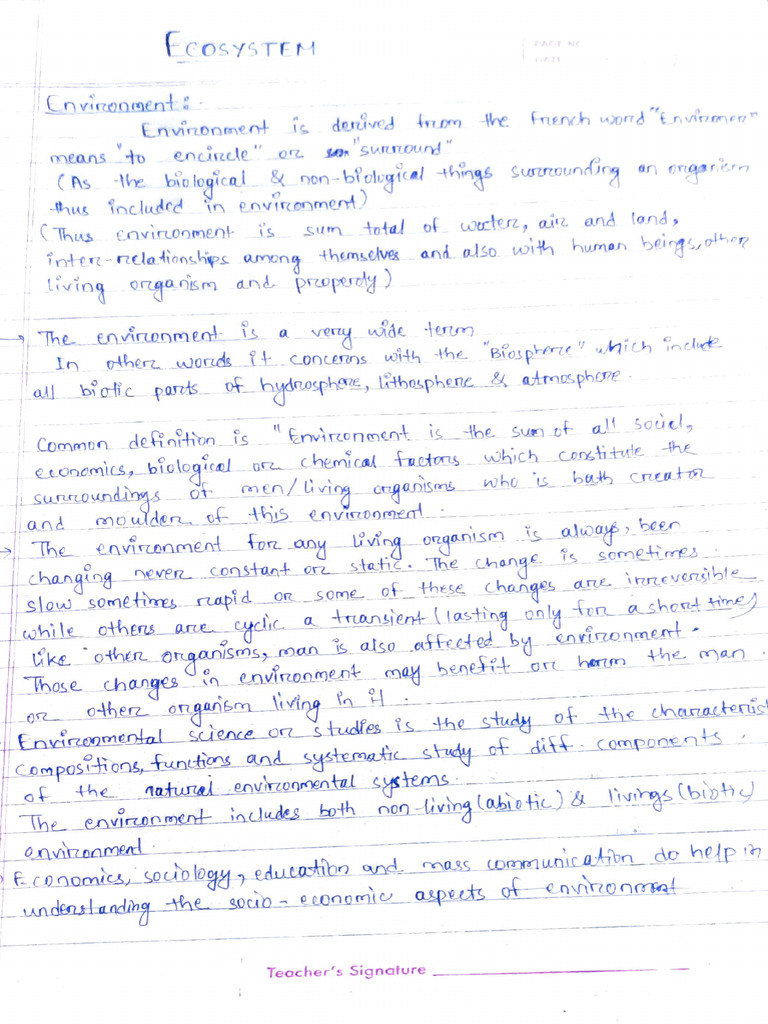 ECOSYSTEM
PAGE NO
DATE
Environment:
Environment is derived from the French word "Enviromen"
means "to encircle" or "surround"
(As the biological & non-biological things surrounding an organism
thus included in environment)
(Thus environment is sum total of water, air and land,
inter-relationships among themselves and also with human beings, other
living organism and properdy)
→ The environment is a very wide term
In other words it concerns with the "Biosphere" which include
all biotic parts of hydrosphere, lithosphere & atmosphere.
Common definition is "Environment is the sum of all social,
economics, biological or chemical factors which constitute the
surroundings of men/living organisms who is bath creator
and moulder of this environment.
→ The environment for any living organism is always, been
changing never constant or static. The change is sometimes
slow sometimes rapid or some of these changes are irreversible
while others are cyclic a transient (lasting only for a short time)
like other organisms, man is also affected by environment.
Those changes in environment may benefit or harm the man.
or other organism living in it.
Environmental science or studies is the study of the characterist
compositions, functions and systematic study of diff. components.
of the natural environmental systems.
The environment includes both non-living (abiotic) & livings (biotic)
environment.
Economics, sociology, education and mass communication do help in
understanding the socio-economic aspects of environment
Teacher's Signature